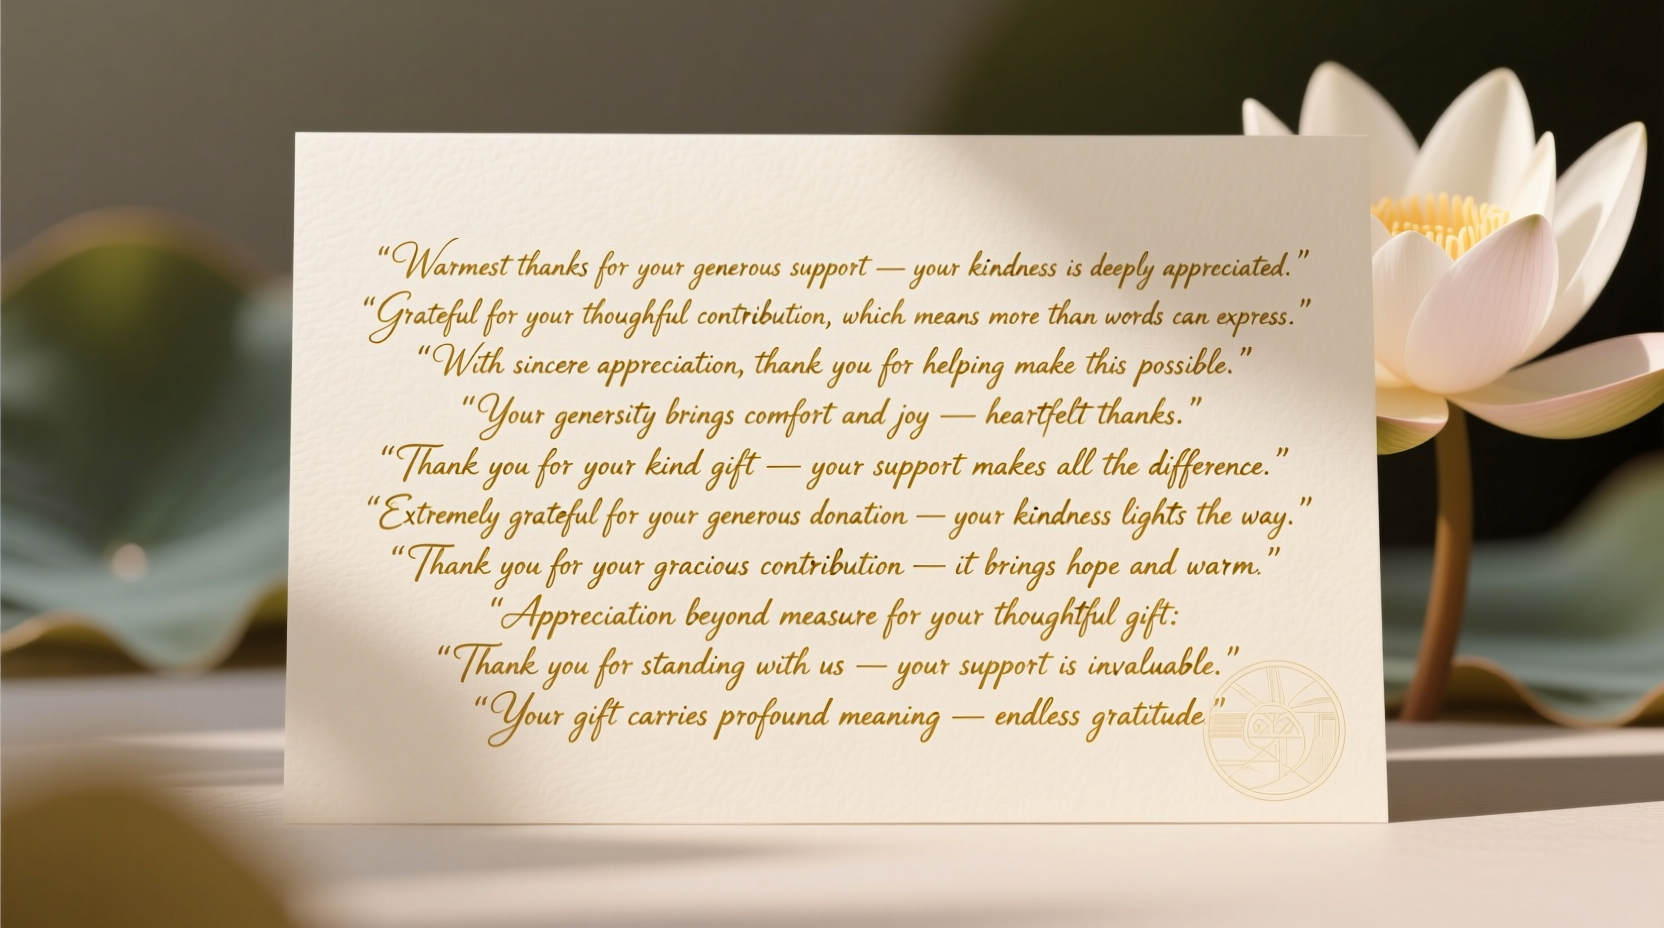 “Warmest thanks for your generous support — your kindness is deeply appreciated.”
“Grateful for your thoughtful contribution, which means more than words can express.”
“With sincere appreciation, thank you for helping make this possible.”
“Your genersity brings comfort and joy — heartfelt thanks.”
“Thank you for your kind gift — your support makes all the difference.”
“Extremely grateful for your generous donation — your kindness lights the way.”
“Thank you for your gracious contribution — it brings hope and warm.”
“Appreciation beyond measure for your thoughtful gift:
“Thank you for standing with us — your support is invaluable.”
“Your gift carries profound meaning — endless gratitude.”